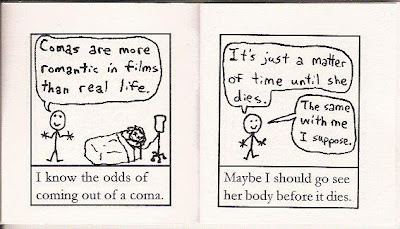 Comas are more
romantic in films
than real life.
I know the odds of
coming out of a coma.
It's just a matter
of time until she
dies.
The same
with me
I suppose.
Maybe I should go see
her body before it dies.